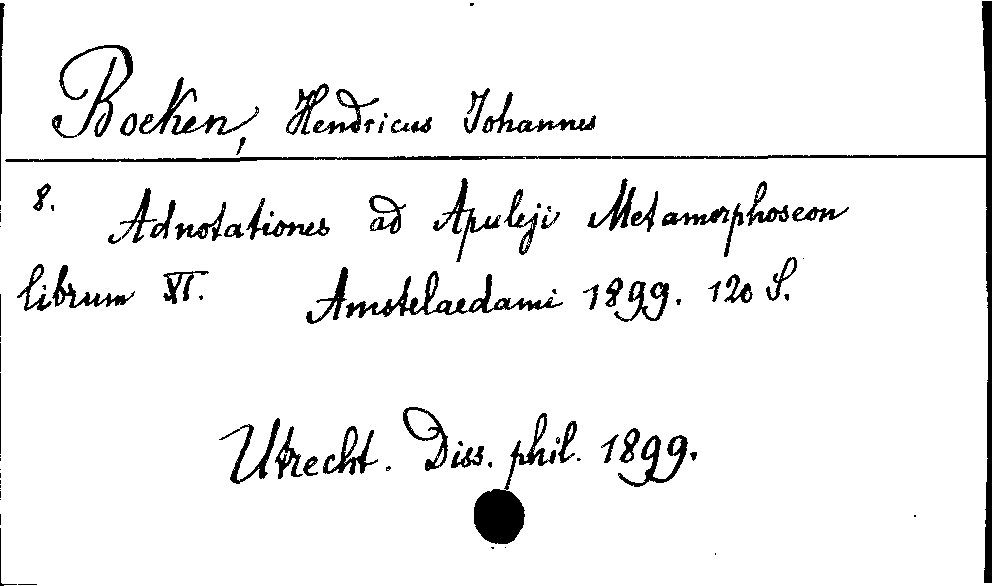 Boeken, Hendricus Johannes
8. Adnotationes ad Apuleji Metamorphoseon
librum XI. Amstelaedami 1899. 120 S.
Utrecht. Diss. phil. 1899.